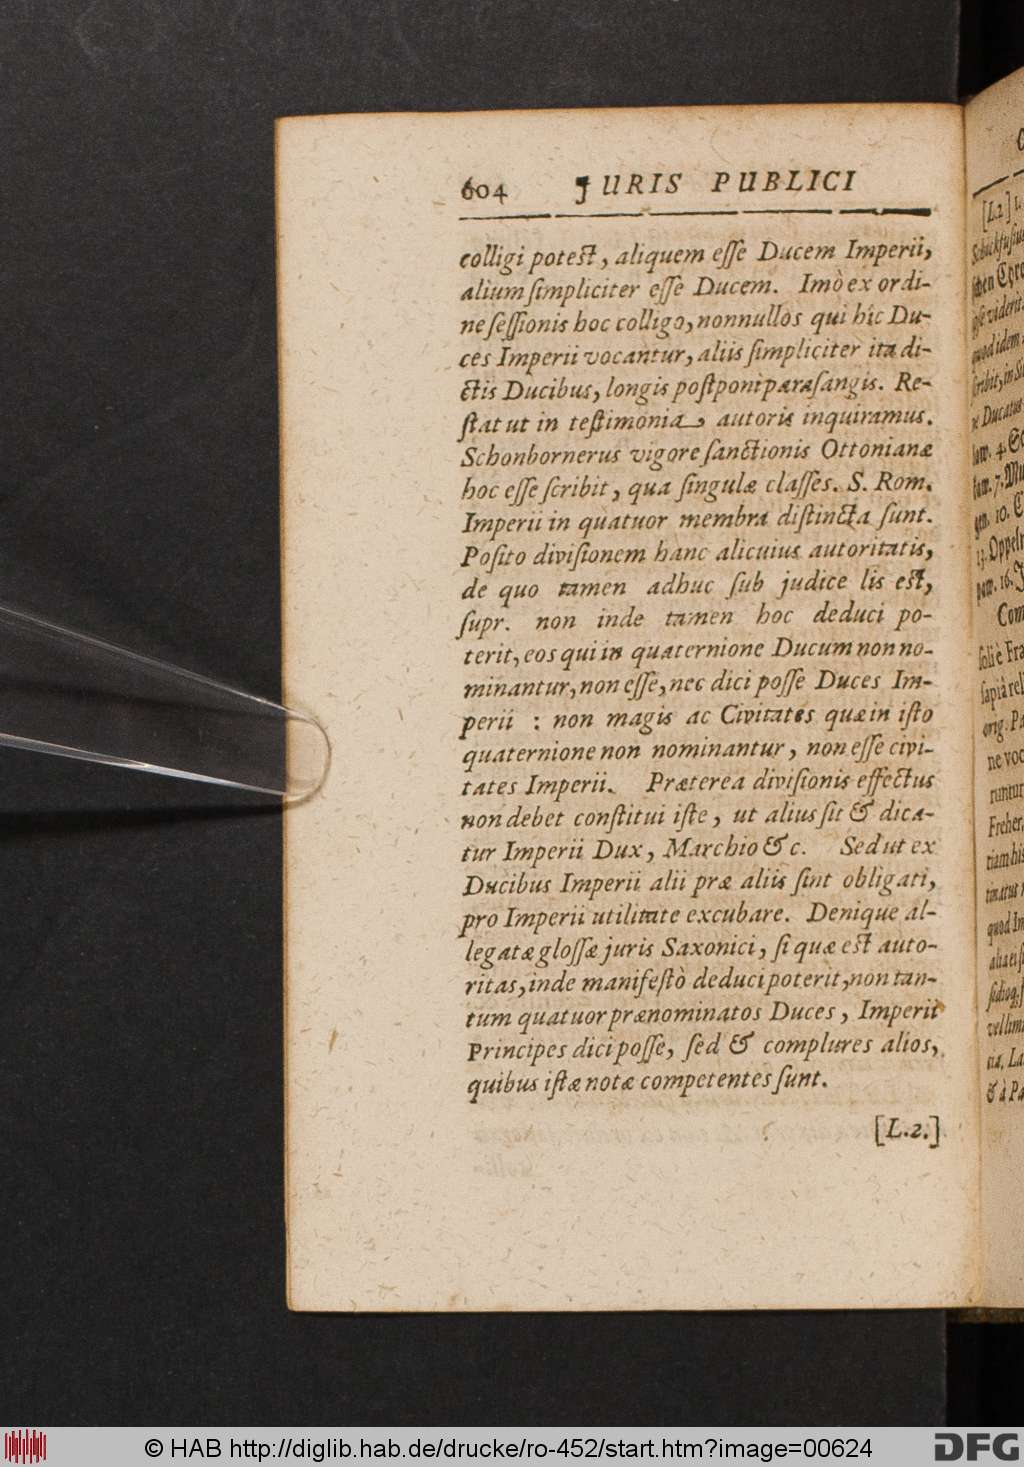 604 JURIS PUBLICI
colligi potest, aliquem esse Ducem Imperii,
alium simpliciter esse Ducem. Imò ex ordi-
ne sessionis hoc colligo, nonnullos qui hîc Du-
ces Imperii vocantur, aliis simpliciter ita di-
ctis Ducibus, longis postponi parasangis. Re-
stat ut in testimonia, autoris inquiramus.
Schonbornerus vigore sanctionis Ottonianæ
hoc esse scribit, qua singulæ classes. S. Rom.
Imperii in quatuor membra distincta sunt.
Posito divisionem hanc alicuius autoritatis,
de quo tamen adhuc sub judice lis est,
supr. non inde tamen hoc deduci po-
terit, eos qui in quaternione Ducum non no-
minantur, non esse, nec dici posse Duces Im-
perii : non magis ac Civitates quæ in isto
quaternione non nominantur, non esse civi-
tates Imperii. Præterea divisionis effectus
non debet constitui iste, ut alius sit & dica-
tur Imperii Dux, Marchio & c. Sed ut ex
Ducibus Imperii alii præ aliis sint obligati,
pro Imperii utilitate excubare. Denique al-
legatæ glossæ juris Saxonici, si quæ est auto-
ritas, inde manifestò deduci poterit, non tan-
tum quatuor prænominatos Duces, Imperii
Principes dici posse, sed & complures alios,
quibus istæ notæ competentes sunt.
[L.2.]
[L.2] 1.
ne Ducatus
13. Oppeln
quod Im
& à Pa
© HAB http://diglib.hab.de/drucke/ro-452/start.htm?image=00624
DFG